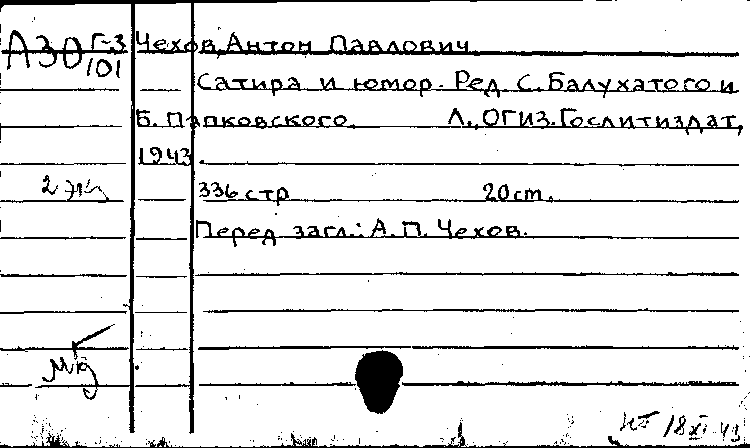 А30 Г-3/101 Чехов, Антон Павлович
Сатира и юмор. Ред. С. Балухатого и
Б. Папковского. Л., ОГИЗ. Гослитиздат,
1943.
2 экз 336 стр 20 cm.
Перед загл.: А. П. Чехов.
18 XI 43